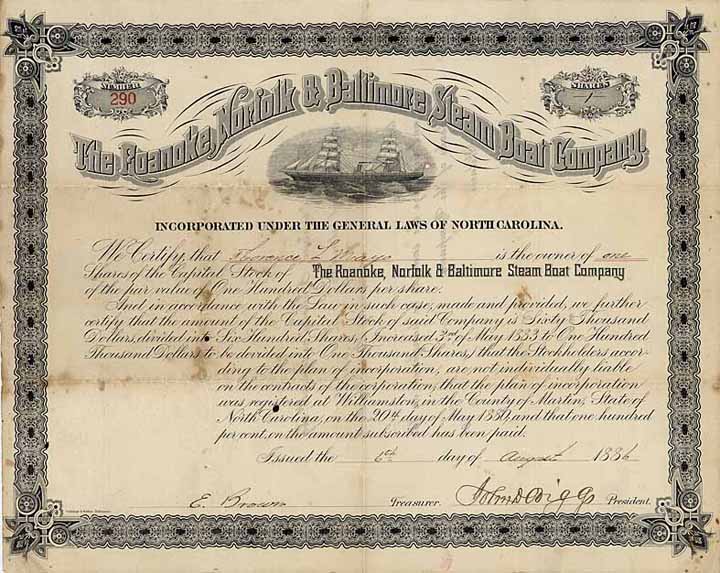 NUMBER
290
SHARES
1
The Roanoke, Norfolk & Baltimore Steam Boat Company.
INCORPORATED UNDER THE GENERAL LAWS OF NORTH CAROLINA.
We Certify, that Florence L Mayo is the owner of one
Shares of the Capital Stock of The Roanoke, Norfolk & Baltimore Steam Boat Company
of the par value of One Hundred Dollars per share.
And in accordance with the Law in such case, made and provided, we further
certify that the amount of the Capital Stock of said Company is Sixty Thousand
Dollars, divided into Six Hundred Shares, (Increased 3rd of May 1883 to One Hundred
Thousand Dollars to be devided into One Thousand Shares,) that the Stockholders accor-
ding to the plan of incorporation, are not individually liable
on the contracts of the corporation, that the plan of incorporation
was registered at Williamston, in the County of Martin, State of
North Carolina, on the 20th day of May 1880, and that one hundred
per cent. on the amount subscribed has been paid.
Issued the 6th day of August 1886
E. Brown Treasurer. John D Biggs President.